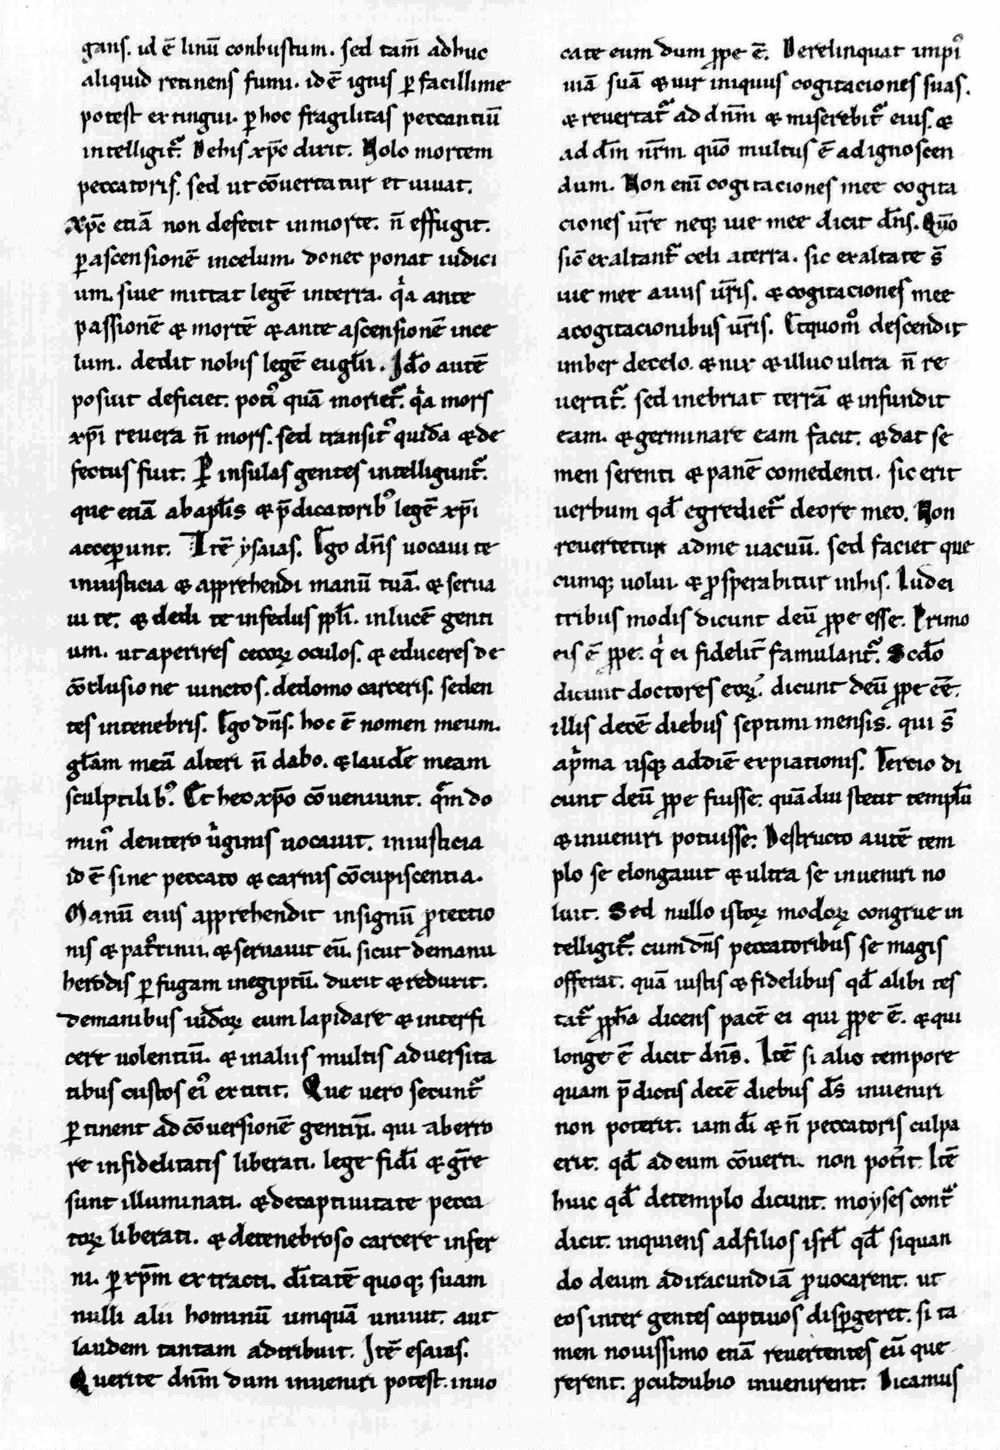 gans. id ē linū conbustum. sed tam̄ adhuc
aliquid retinens fumi. id ē ignis ꝑ facillime
potest extingui. ꝑ hoc fragilitas peccantiū
intelligit᷑. De his xp̄c dixit. Nolo mortem
peccatoris. sed ut cōvertatur et vivat.
xp̄c etiā non defecit in morte. n̄ effugit.
ꝑ ascensionē in celum. donec ponat iudici
um. sive mittat legē in terra. qͥa ante
passionē & mortē & ante ascensionē in ce
lum. dedit nobis legē euglīi. Id̄o autē
posuit deficiet. poti᷒ quā moriet᷑. qͥa mors
xp̄i revera n̄ mors. sed transit᷒ quidā & de
fectus fuit. Ꝑ insulas gentes intelligunt᷑.
que etiā ab apl̄is & p̄dicatorib᷒ legē xp̄i
acceꝑunt. Itē ysaias. Ego dn̄s vocavi te
in iusticia & apprehendi manū tuā. & serva
vi te. & dedi te in fedus ppl̄i. in lucē genti
um. ut aperires cecoꝝ oculos. & educeres de
cōclusione vinctos. de domo carceris. seden
tes in tenebris. Ego dn̄s. hoc ē nomen meum.
gl̄am meā alteri n̄ dabo. & laudē meam
sculptilib᷒. Et hec xp̄o cōveniunt. qm̄ do
min᷒ de utero v̓ginis vocavit. in iusticia
id ē sine peccato & carnis cōcupiscentia.
Manū eius apprehendit in signū ꝓtectio
nis & pat̄rinii. & servavit eū. sicut de manu
herodis ꝑ fugam in egiptū. duxit & reduxit.
de manibus iud̄oꝝ eum lapidare & interfi
cere volentiū. & in aliis multis adversita
tibus custos ei᷒ extitit. Que vero secunt᷑
ꝑtinent ad cōversionē gentiū. qui ab erro
re infidelitatis liberati. lege fid̄i & gr̄e
sunt illuminati. & de captivitate pecca
toꝝ liberati. & de tenebroso carcere infer
ni. ꝑ xp̄m extracti. d̄itatē quoqꝫ suam
nulli alii hominū umquā univit. aut
laudem tantam attribuit. Itē esaias.
Querite dn̄m dum inveniri potest. invo
cate eum dum ꝓpe ē. Derelinquat impi᷒
viā suā & vir iniquus cogitaciones suas.
& revertat᷑ ad dn̄m & miserebit᷑ eius. &
ad d̄m nr̄m. quō multus ē ad ignoscen
dum. Non eni cogitaciones mee cogita
ciones vr̄e neqꝫ vie mee dicit dn̄s. Quō
sic̄ exaltant᷑ celi a terra. sic exaltate s̄
vie mee a viis vr̄is. & cogitaciones mee
a cogitacionibus vr̄is. Et quom̄o descendit
imber de celo. & nix & illuc ultra n̄ re
vertit᷑. sed inebriat terrā & infundit
eam. & germinare eam facit. & dat se
men serenti & panē comedenti. sic erit
verbum qd̄ egrediet᷑ de ore meo. Non
revertetur ad me vacuū. sed faciet que
cumqꝫ volui. & ꝓsperabitur in his. Iudei
tribus modis dicunt deū ꝓpe esse. Primo
eis ē ꝓpe. qͥ ei fidelit̄ famulant᷑. Scd̄o
dicunt doctores eoꝝ. dicunt deū ꝓpe eē.
illis decē diebus septimi mensis. qui s̄
a pͥma usqꝫ ad diē expiationis. Tercio di
cunt deū ꝓpe fuisse. quādiu stetit templū
& inveniri potuisse. Destructo autē tem
plo se elongavit & ultra se inveniri no
luit. Sed nullo istoꝝ modoꝝ congrue in
telligit᷑. cum dn̄s peccatoribus se magis
offerat. quā iustis & fidelibus qd̄ alibi tes
tat᷑ ꝓph̄a dicens pacē ei qui ꝓpe ē. & qui
longe ē dicit dn̄s. Itē si alio tempore
quam p̄dictis decē diebus d̄s inveniri
non poterit. iam d̄i & n̄ peccatoris culpa
erit. qd̄ ad eum cōverti. non pot̄it. Itē
huic qd̄ de templo dicunt. moyses cont᷑
dicit. inquiens ad filios isrl̄ qd̄ siquan
do deum ad iracundiā ꝓvocarent. ut
eos inter gentes captivos disꝑgeret. si ta
men novissimo etiā revertentes eū que
rerent. ꝓculdubio invenirent. Dicamus